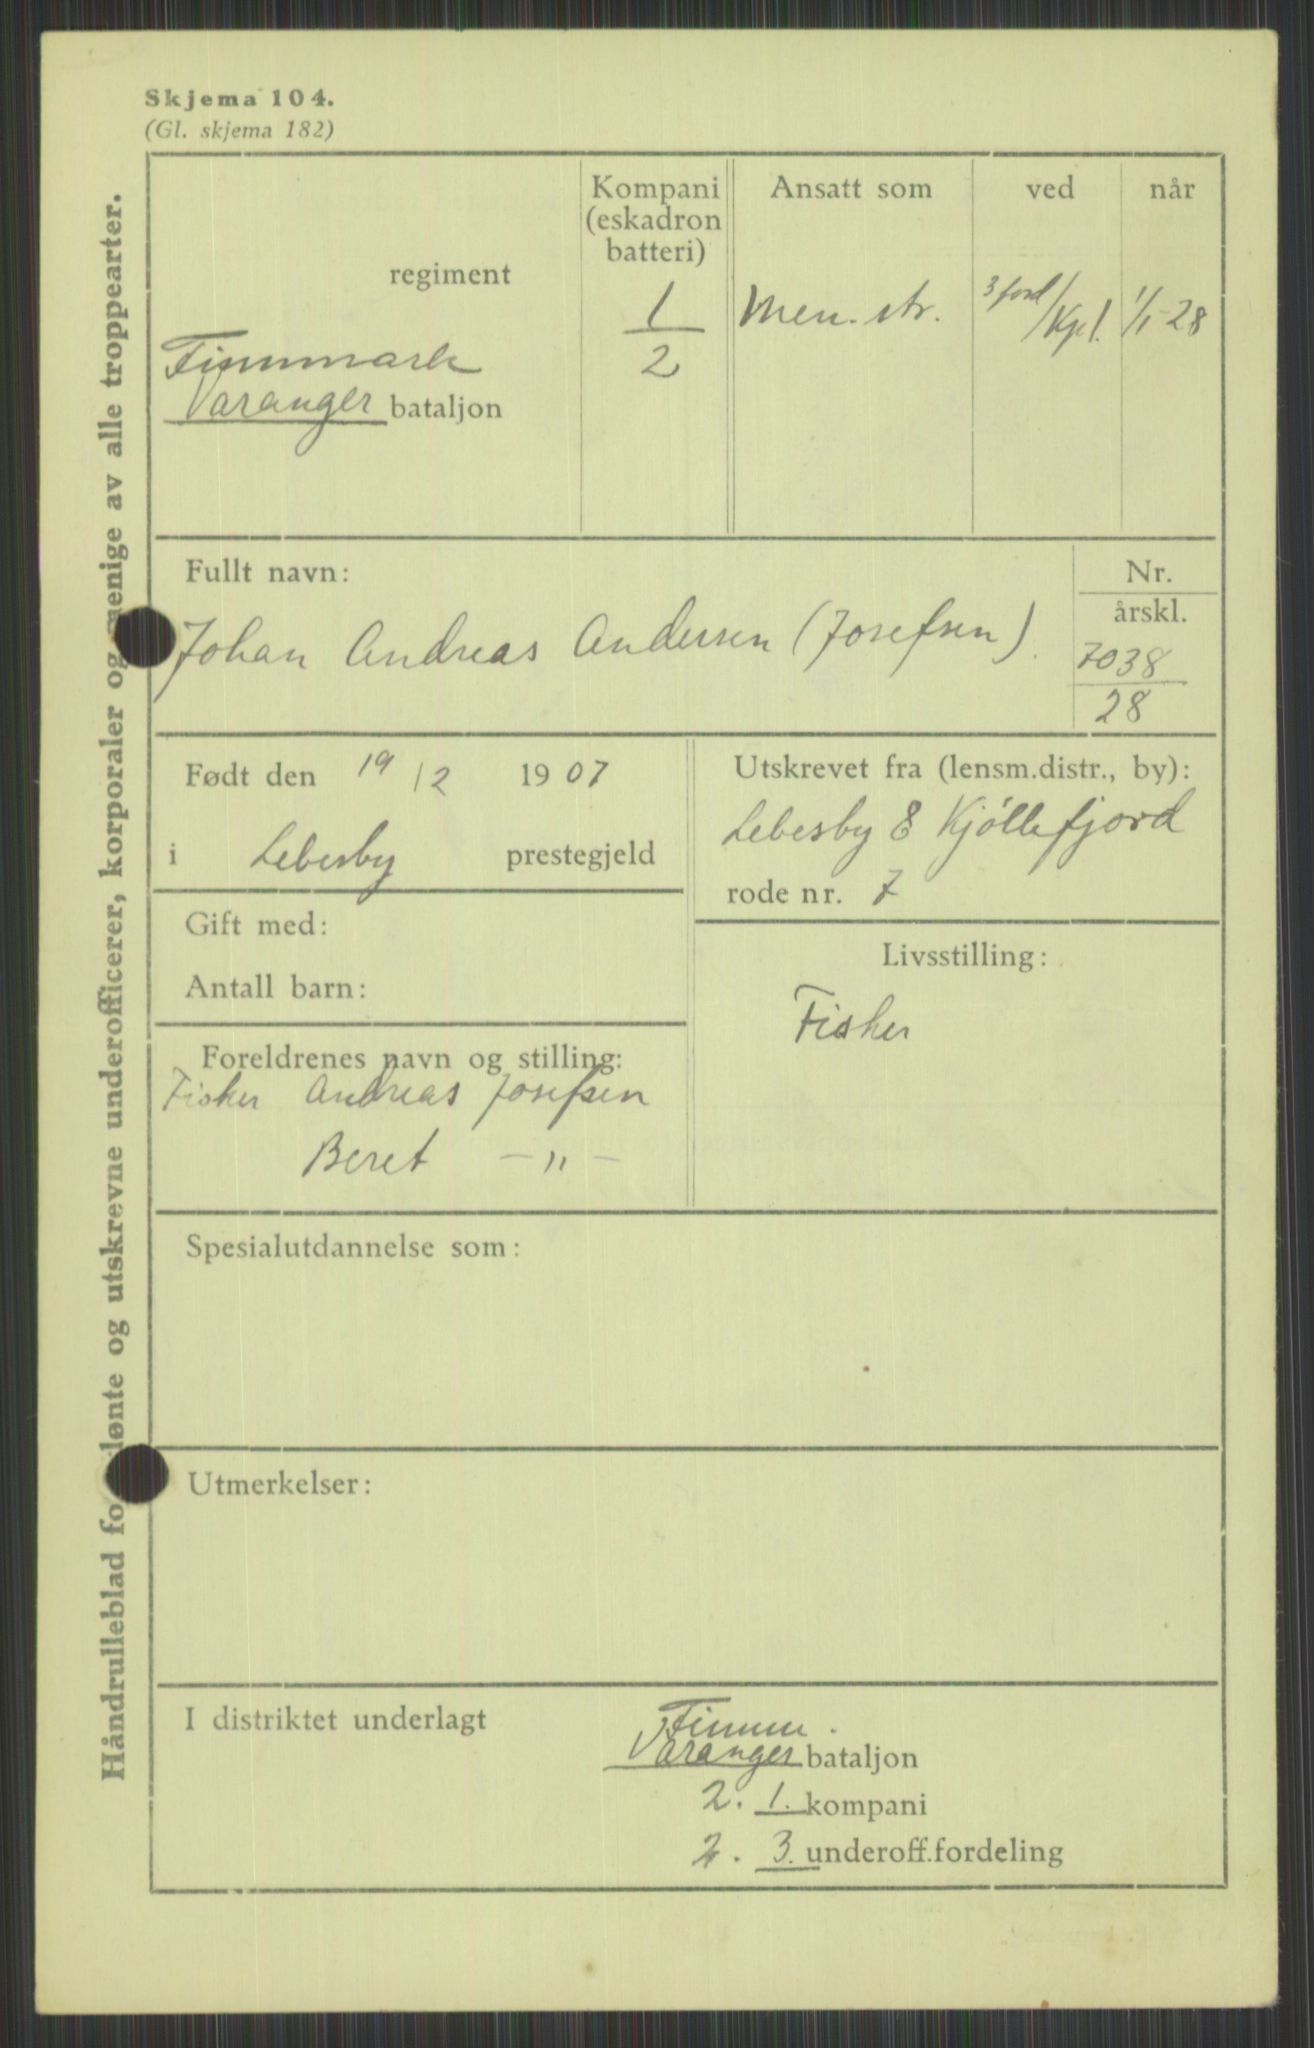 Skjema 104.
(Gl. skjema 182)
Håndrulleblad for lønte og utskrevne underofficerer, korporaler og menige av alle troppearter.
regiment
Finnmark
Varanger bataljon
Kompani
(eskadron
batteri)
1
2
Ansatt som
Men. str.
ved
3 ford/Kp1.
når
1/1-28
Fullt navn:
Johan Andreas Andersen (Josefsen).
Nr.
årskl.
7038
28
Født den 19/2 1907
i Lebesby prestegjeld
Utskrevet fra (lensm.distr., by):
Lebesby & Kjøllefjord
rode nr. 7
Gift med:
Antall barn:
Livsstilling:
Fisker
Foreldrenes navn og stilling:
Fisker Andreas Josefsen
Beret — " —
Spesialutdannelse som:
Utmerkelser:
I distriktet underlagt
Finnm.
Varanger bataljon
2. 1. kompani
2. 3. underoff.fordeling